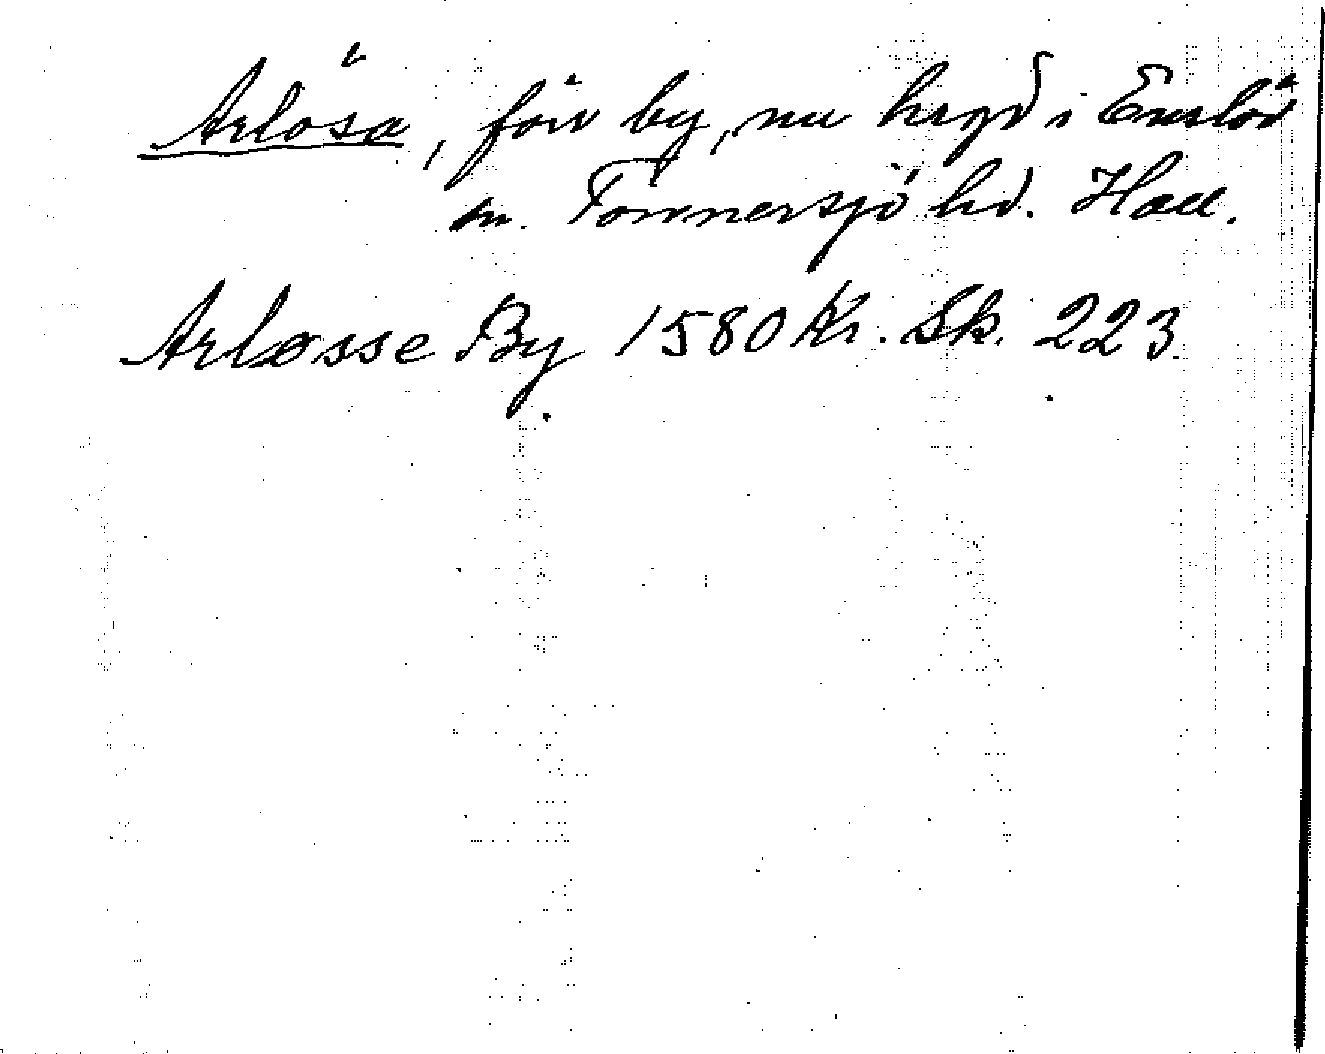 Arlösa, förr by, nu hrgd i Enslöv
sn. Tönnersjö hd. Hall.
Arløsse By 1580 Kr. Sk. 223.